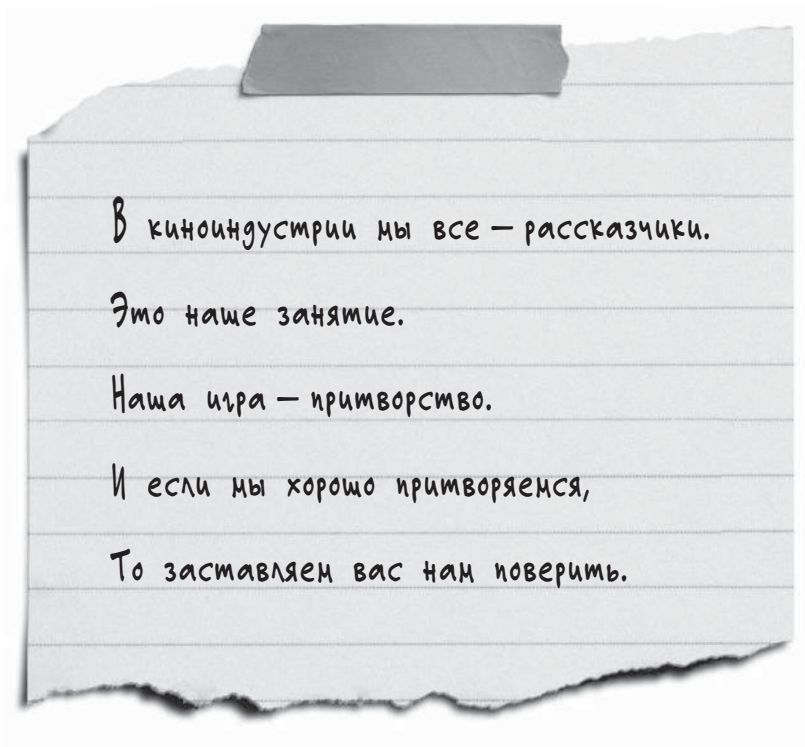 В киноиндустрии мы все — рассказчики.
Это наше занятие.
Наша игра — притворство.
И если мы хорошо притворяемся,
То заставляем вас нам поверить.